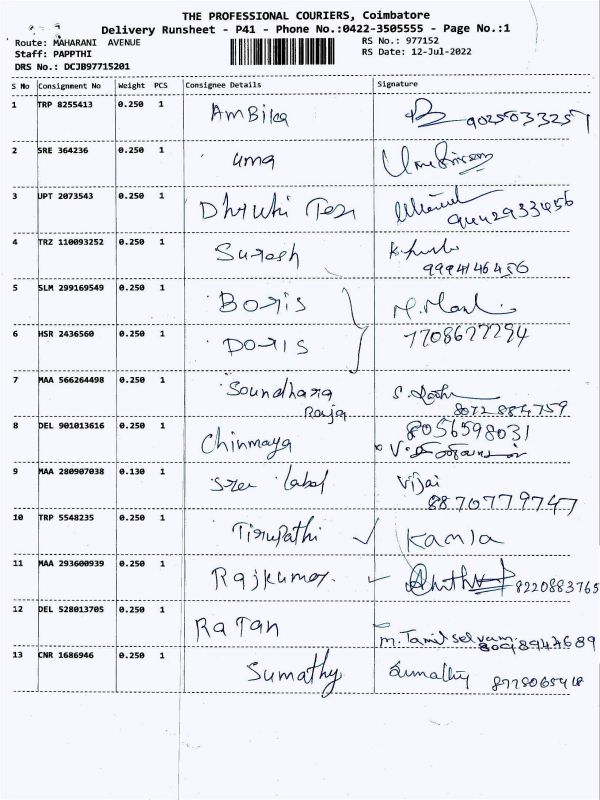 THE PROFESSIONAL COURIERS, Coimbatore
Delivery Runsheet - P41 - Phone No.:0422-3505555 - Page No.:1
Route: MAHARANI AVENUE RS No.: 977152
Staff: PAPPTHI RS Date: 12-Jul-2022
DRS No.: DCJB97715201
S No Consignment No Weight PCS Consignee Details Signature
1 TRP 8255413 0.250 1 AmBika 9025033257
2 SRE 364236 0.250 1 uma
3 UPT 2073543 0.250 1 Dhruhi 9442933456
4 TRZ 110093252 0.250 1 Suresh
9994146456
5 SLM 299169549 0.250 1 Boris
6 HSR 2436560 0.250 1 Doris 7708677294
7 MAA 566264498 0.250 1 Soundhara
Raja 8072884759
8 DEL 901013616 0.250 1 Chinmaya 8056598031
9 MAA 280907038 0.130 1 Sree Label Vijai
8870779747
10 TRP 5548235 0.250 1 Tirupathi Kamla
11 MAA 293600939 0.250 1 Rajkumar 8220883765
12 DEL 528013705 0.250 1 RaTan m. Tamil selvam
13 CNR 1686946 0.250 1 Sumathy Sumathy